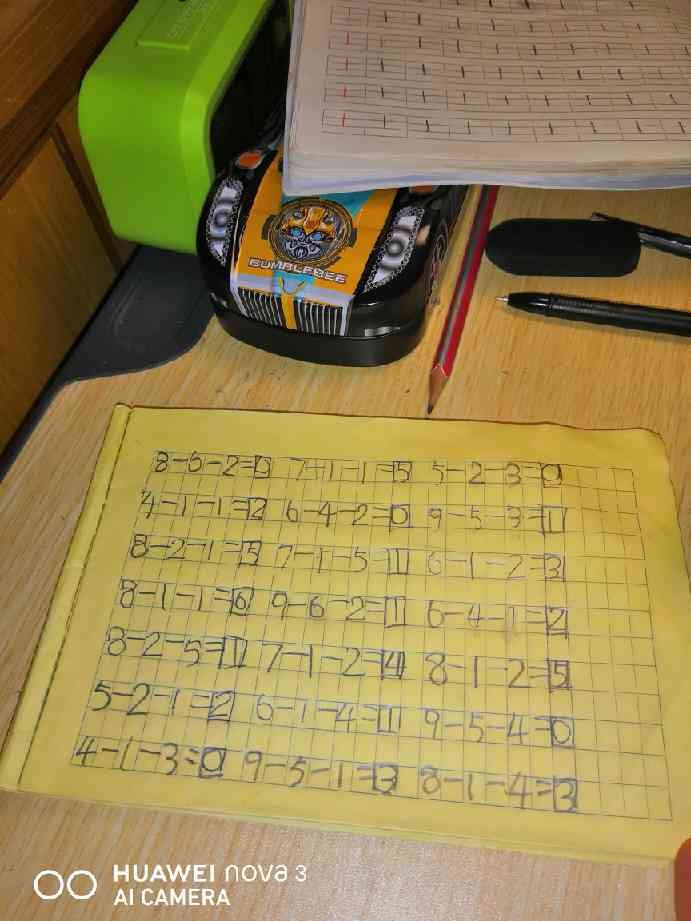 BUMBLEBEE
8-6-2=0 7-1-1=5 5-2-3=0
4-1-1=2 6-4-2=0 9-5-3=1
8-2-1=5 7-1-5=1 6-1-2=3
8-1-1=6 9-6-2=1 6-4-1=2
8-2-5=1 7-1-2=4 8-1-2=5
5-2-1=2 6-1-4=1 9-5-4=0
4-1-3=0 9-5-1=3 8-1-4=3
HUAWEI nova 3
AI CAMERA